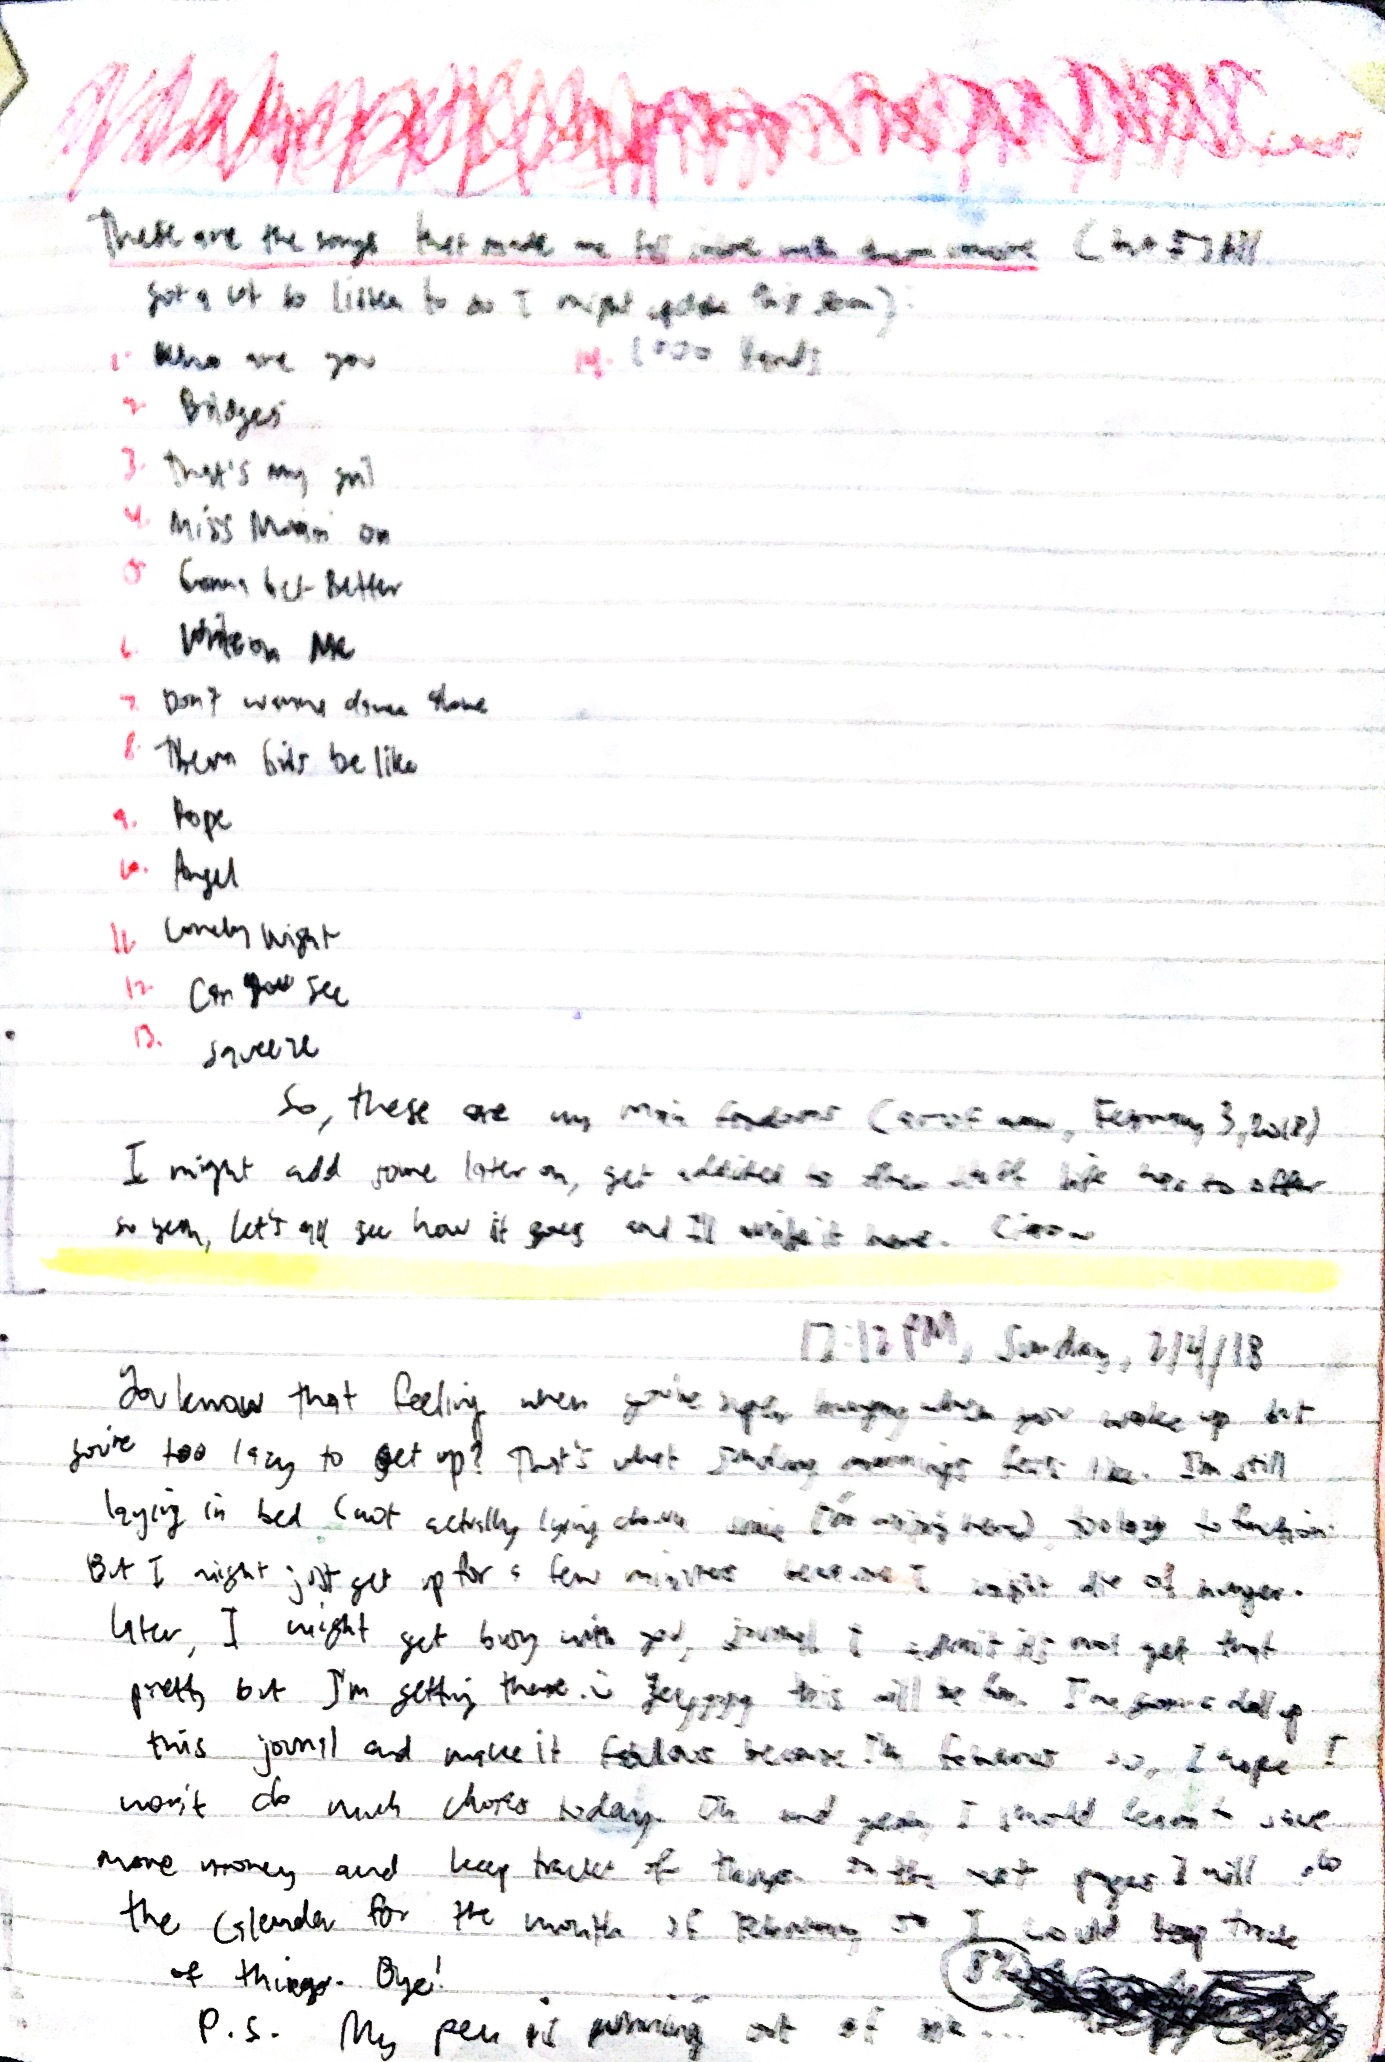 These are the songs that made me fall more with (but still
got a lot to listen to so I might update this soon):
1. Who are you
14. 1000 Hands
2. Bridges
3. That's my girl
4. Miss Movin' on
5. Gonna Get Better
6. Write on Me
7. Don't wanna dance alone
8. Them Girls be like
9. Hope
10. Angel
11. Lonely Night
12. Can you see
13. Squeeze
So, these are my main fandoms (as of now, February 3, 2018)
I might add some later on, get addicted to other stuff life has to offer
so yeah, let's all see how it goes and I'll write it here. Ciaow
12:12 PM, Sunday, 2/4/18
You know that feeling when you're super hungry when you woke up but
you're too lazy to get up? That's what Sunday mornings feels like. I'm still
laying in bed (not actually lying down since I'm writing here) too lazy to function.
But I might just get up for a few minutes because I might die of hunger.
Later, I might get busy with you, journal I admit it's not get that
pretty but I'm getting there. this will be fun. I'm gonna doll up
this journal and make it fabulous because I'm fabulous so, I hope I
won't do much chores today. Oh and yeah, I should learn to save
more money and keep track of things. On the next pages I will do
the Calendar for the month of February so I would keep track
of things. Bye!
P.S. My pen is running out of ink...